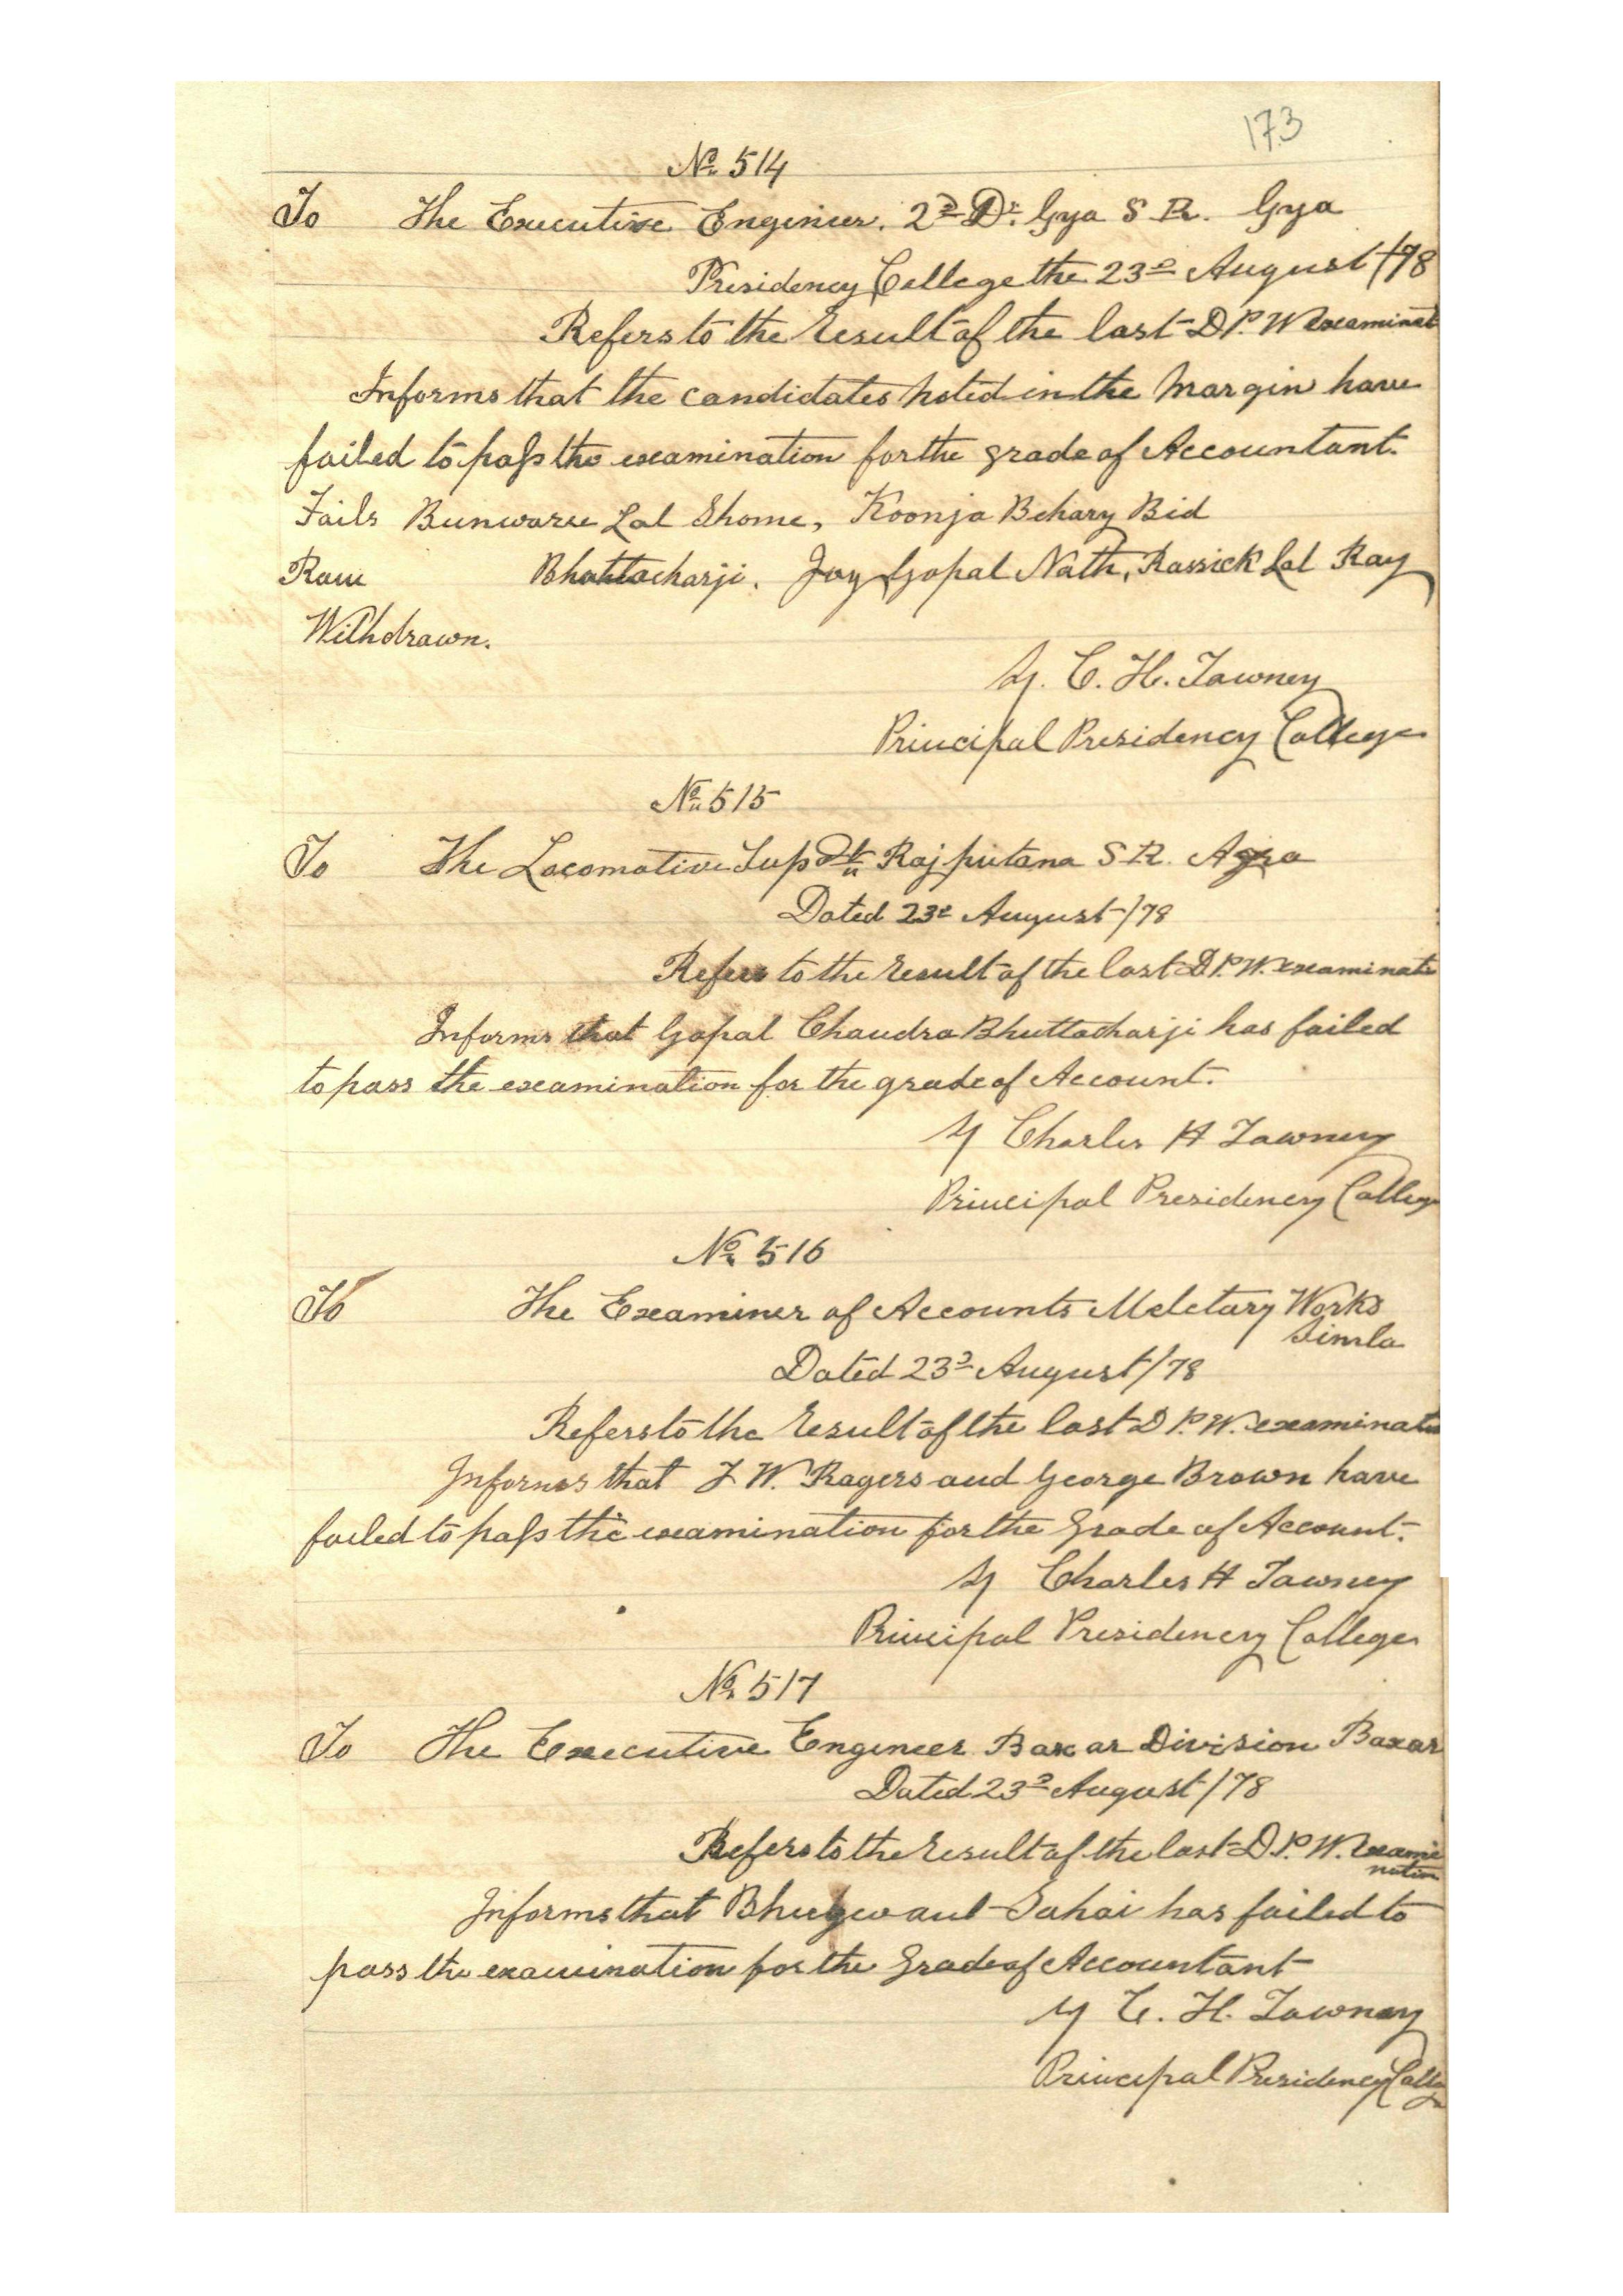 173
No. 514
To The Executive Engineer. 2nd Dn. Gya S R. Gya
Presidency College the 23d August /78
Refers to the result of the last D P. W examinat
Informs that the candidates noted in the margin have
failed to pass the examination for the grade of Accountant.
Fails Bunwaree Lal Shome, Koonja Behary Bid
Bhattacharji. Joy Gopal Nath, Rassick Lal Ray
Withdrawn.
Sy. C. H. Tawney
Principal Presidency College
No. 515
To The Locomotive Supdt. Rajputana S R. Agra
Dated 23d August /78
Refers to the result of the last D P. W. examinati
Informs that Gopal Chandra Bhuttacharji has failed
to pass the examination for the grade of Account.
Sy Charles H Tawney
Principal Presidency College
No. 516
To The Examiner of Accounts Meletary Works
Simla
Dated 23d August /78
Refers to the result of the last D P. W. examinatio
Informs that J W. Rogers and George Brown have
failed to pass the examination for the Grade of Account.
Sy Charles H Tawney
Principal Presidency College
No. 517
To The Executive Engineer Baxar Division Baxar
Dated 23d August /78
Refers to the result of the last D. P. W. exami
nation
Informs that Bhugwant Sahai has failed to
pass the examination for the Grade of Accountant
Sy C. H. Tawney
Principal Presidency College